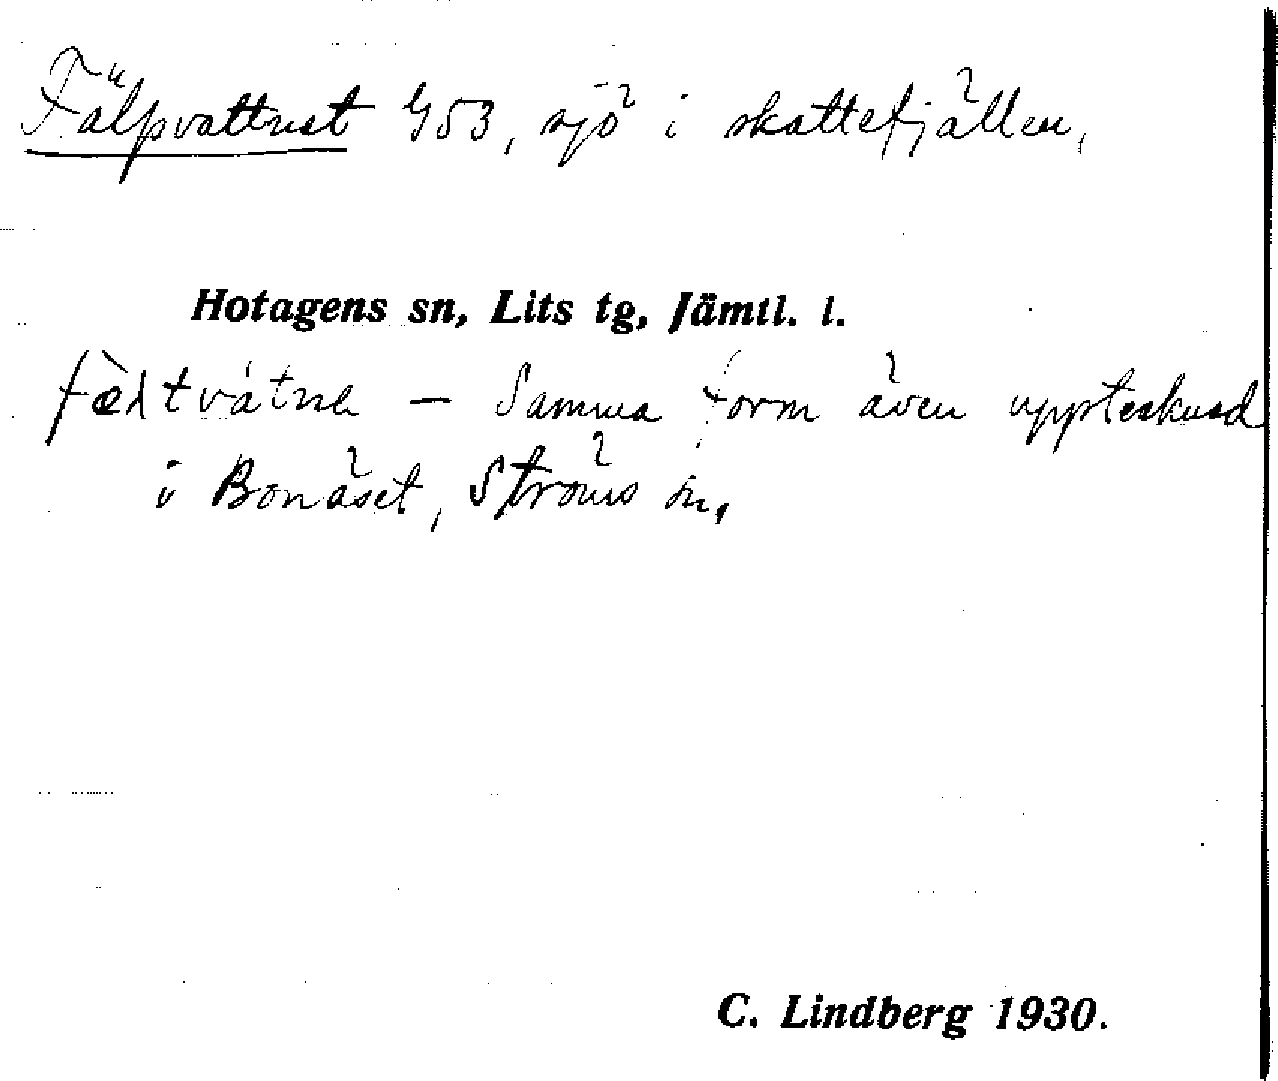 Fälpvattnet G53, sjö i skattefjällen,
Hotagens sn, Lits tg, Jämtl. l.
— Samma form även upptecknad
i Bonäset, Ströms sn.
C. Lindberg 1930.